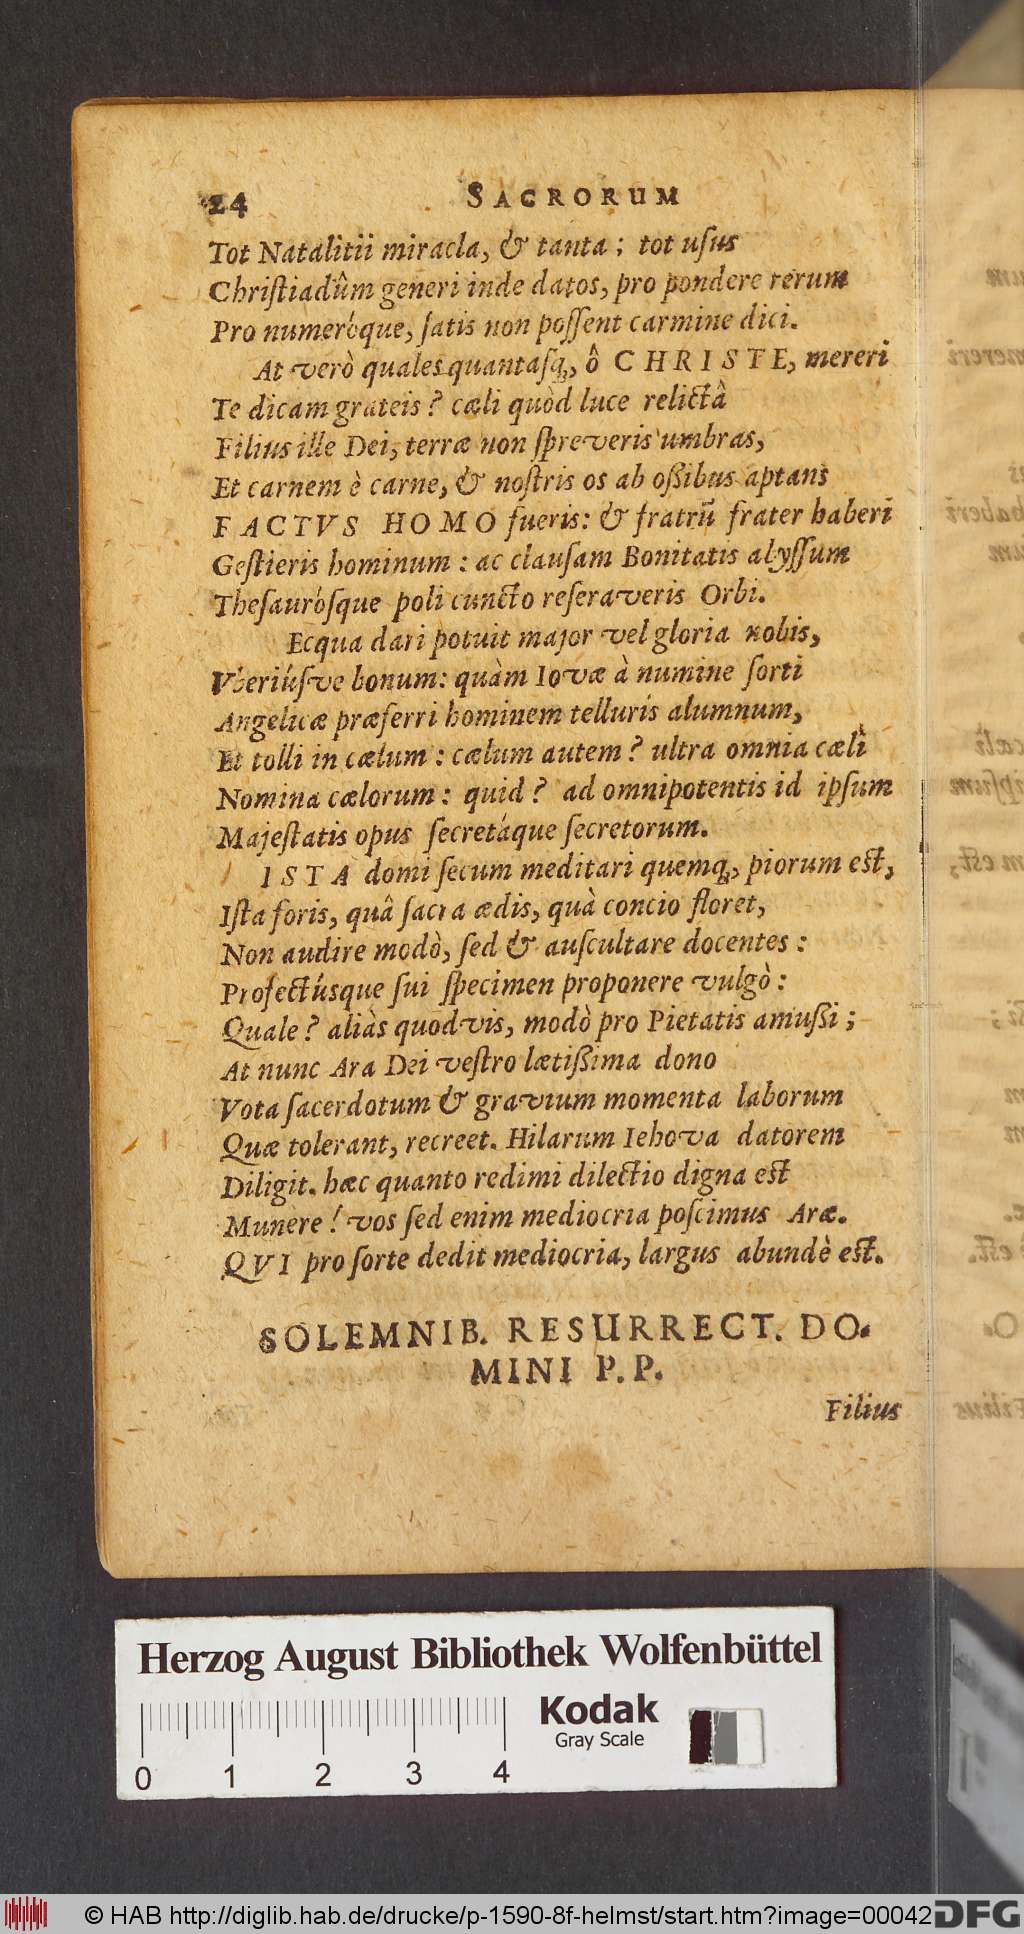 24 SACRORUM
Tot Natalitii miracla, & tanta; tot uſus
Chriſtiadûm generi inde datos, pro pondere rerum
Pro numeróque, ſatis non poſſent carmine dici.
At verò quales quantaſq;, ô CHRISTE, mereri
Te dicam grateis? cæli quòd luce relictâ
Filius ille Dei, terræ non ſpreveris umbras,
Et carnem è carne, & noſtris os ab oßibus aptans
FACTVS HOMO fueris: & fratrū frater haberi
Geſtieris hominum: ac clauſam Bonitatis abyſſum
Theſauróſque poli cuncto reſeraveris Orbi.
Ecqua dari potuit major vel gloria nobis,
Vberiúſve bonum: quàm Iovæ à numine ſorti
Angelicæ præferri hominem telluris alumnum,
Et tolli in cælum: cælum autem? ultra omnia cæli
Nomina cælorum: quid? ad omnipotentis id ipſum
Majeſtatis opus ſecretáque ſecretorum.
ISTA domi ſecum meditari quemq;, piorum eſt,
Iſta foris, quâ ſacra ædis, quà concio floret,
Non audire modò, ſed & auſcultare docentes:
Profectúsque ſui ſpecimen proponere vulgò:
Quale? aliàs quodvis, modò pro Pietatis amußi;
At nunc Ara Dei veſtro lætißima dono
Vota ſacerdotum & gravium momenta laborum
Quæ tolerant, recreet. Hilarum Iehova datorem
Diligit. hæc quanto redimi dilectio digna eſt
Munere! vos ſed enim mediocria poſcimus Aræ.
QVI pro ſorte dedit mediocria, largus abundè eſt.
SOLEMNIB. RESURRECT. DO-
MINI P. P.
Filius
Herzog August Bibliothek Wolfenbüttel
0 1 2 3 4
Kodak
Gray Scale
© HAB http://diglib.hab.de/drucke/p-1590-8f-helmst/start.htm?image=00042
DFG